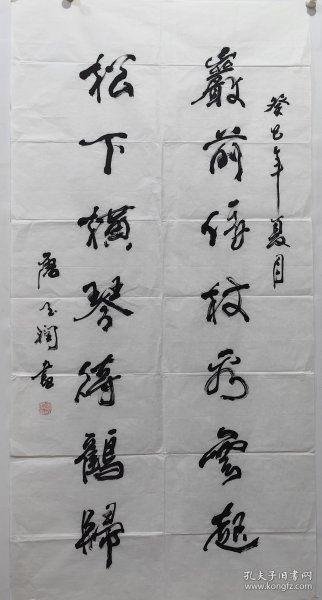 癸巳年夏月
巖前倚杖看雲起
松下橫琴待鶴歸
唐玉润书
孔夫子旧书网
www.kongfz.com